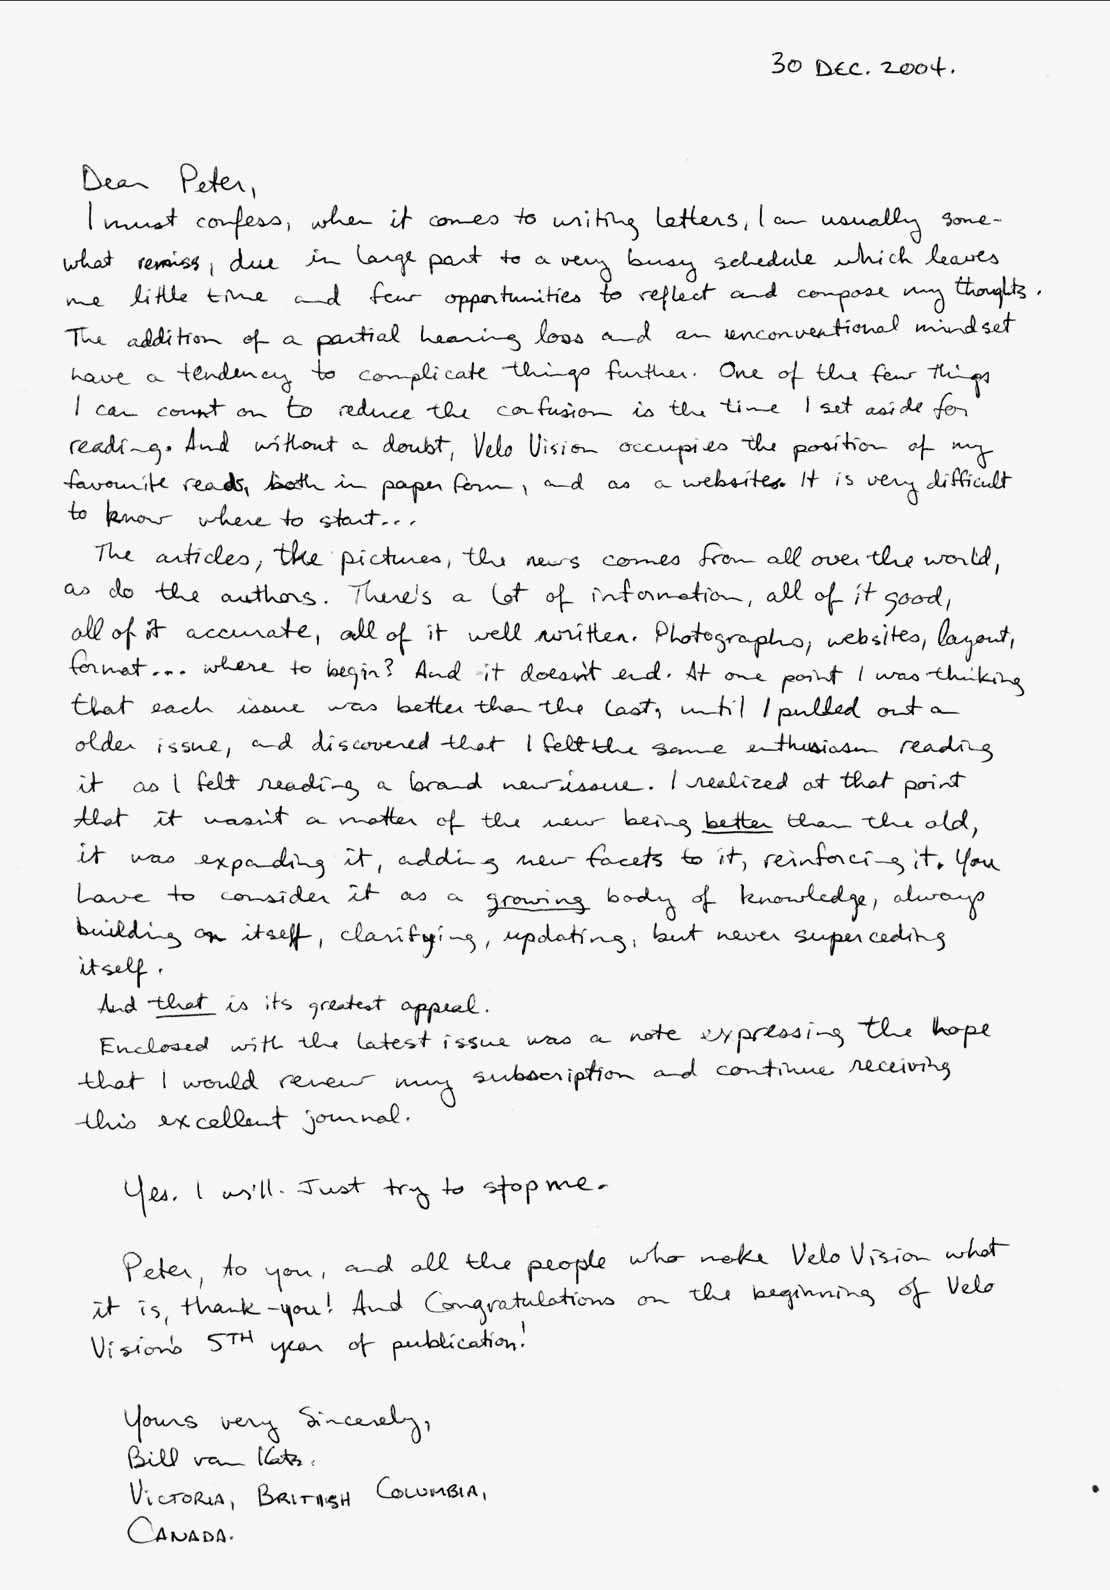 30 DEC. 2004.
Dear Peter,
I must confess, when it comes to writing letters, I am usually some-
what remiss, due in large part to a very busy schedule which leaves
me little time and few opportunities to reflect and compose my thoughts.
The addition of a partial hearing loss and an unconventional mindset
have a tendency to complicate things further. One of the few things
I can count on to reduce the confusion is the time I set aside for
reading. And without a doubt, Velo Vision occupies the position of my
favourite reads, both in paper form, and as a website. It is very difficult
to know where to start...
The articles, the pictures, the news comes from all over the world,
as do the authors. There's a lot of information, all of it good,
all of it accurate, all of it well written. Photographs, websites, layout,
format... where to begin? And it doesn't end. At one point I was thinking
that each issue was better than the last, until I pulled out a
older issue, and discovered that I felt the same enthusiasm reading
it as I felt reading a brand new issue. I realized at that point
that it wasn't a matter of the new being better than the old,
it was expanding it, adding new facets to it, reinforcing it. You
have to consider it as a growing body of knowledge, always
building on itself, clarifying, updating, but never superceding
itself.
And that is its greatest appeal.
Enclosed with the latest issue was a note expressing the hope
that I would renew my subscription and continue receiving
this excellent journal.
Yes. I will. Just try to stop me.
Peter, to you, and all the people who make Velo Vision what
it is, thank-you! And Congratulations on the beginning of Velo
Vision's 5TH year of publication!
Yours very Sincerely,
Bill van
VICTORIA, BRITISH COLUMBIA,
CANADA.